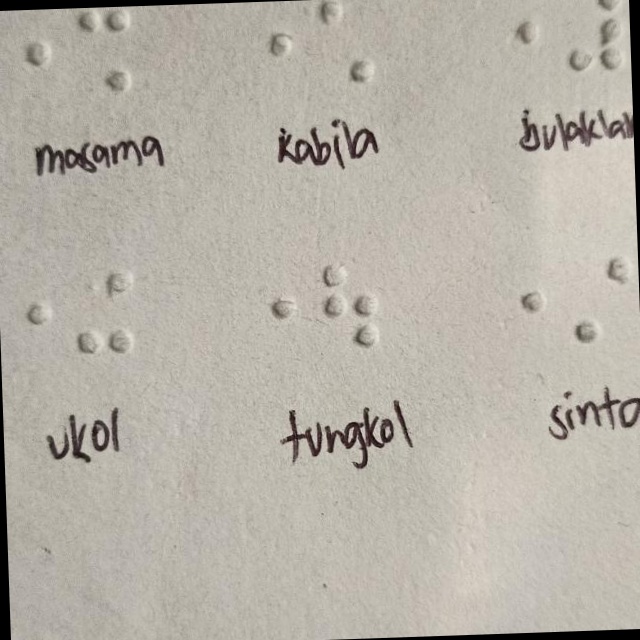 ⠐⠩ ⠐⠡ ⠐⠼
masama kabila bulaklak
⠐⠬ ⠐⠳ ⠐⠌
ukol tungkol